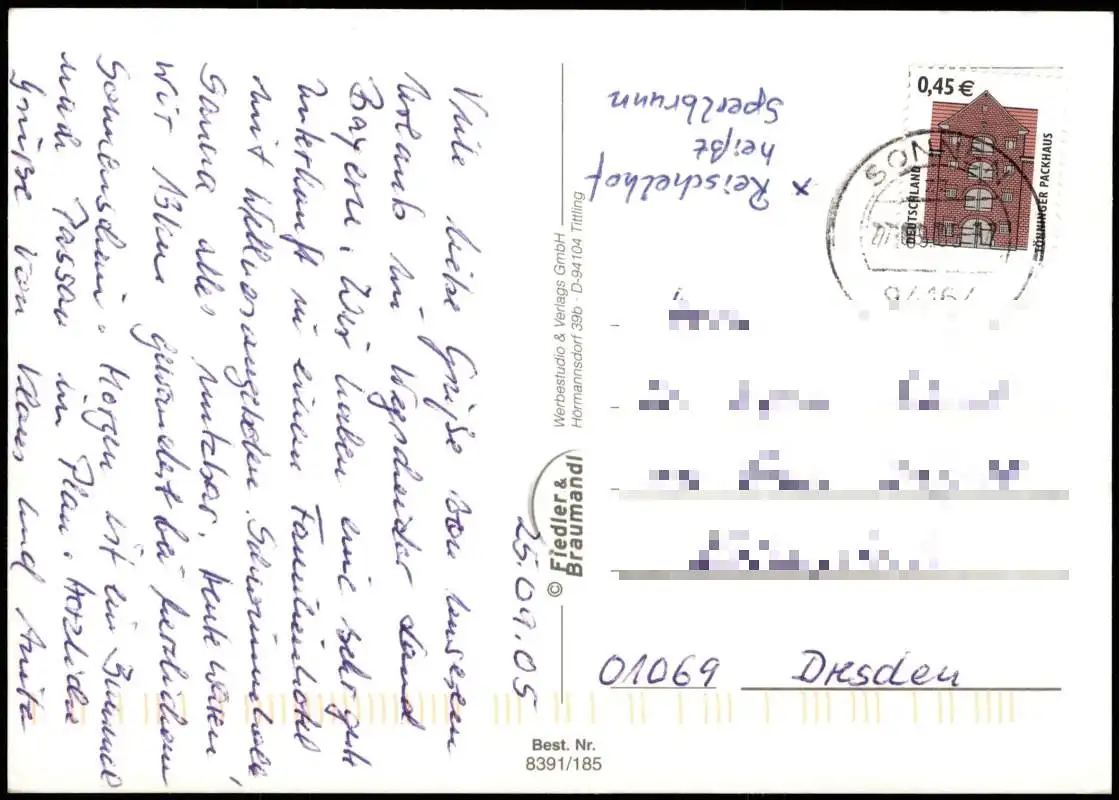 25.09.05
Viele liebe Grüße von unserem
Urlaub im Wegscheider Land
Bayern. Wir haben eine sehr gute
Unterkunft in einem Familienhotel
mit Wellnessangeboten. Schwimmhalle
Sauna alles nutzbar. Heute waren
wir 13 km gewandert bei herrlichem
Sonnenschein. Morgen ist ein Bummel
nach Passau im Plan. Herzliche
Grüße von Klaus und Anita
x Reischelhof
heißt
Sperlbrunn
Werbestudio & Verlags GmbH
Hörmannsdorf 39b · D-94104 Tittling
© Fiedler &
Braumandl
0,45 €
DEUTSCHLAND
TÖNNINGER PACKHAUS
SONN
94164
01069 Dresden
Best. Nr.
8391/185